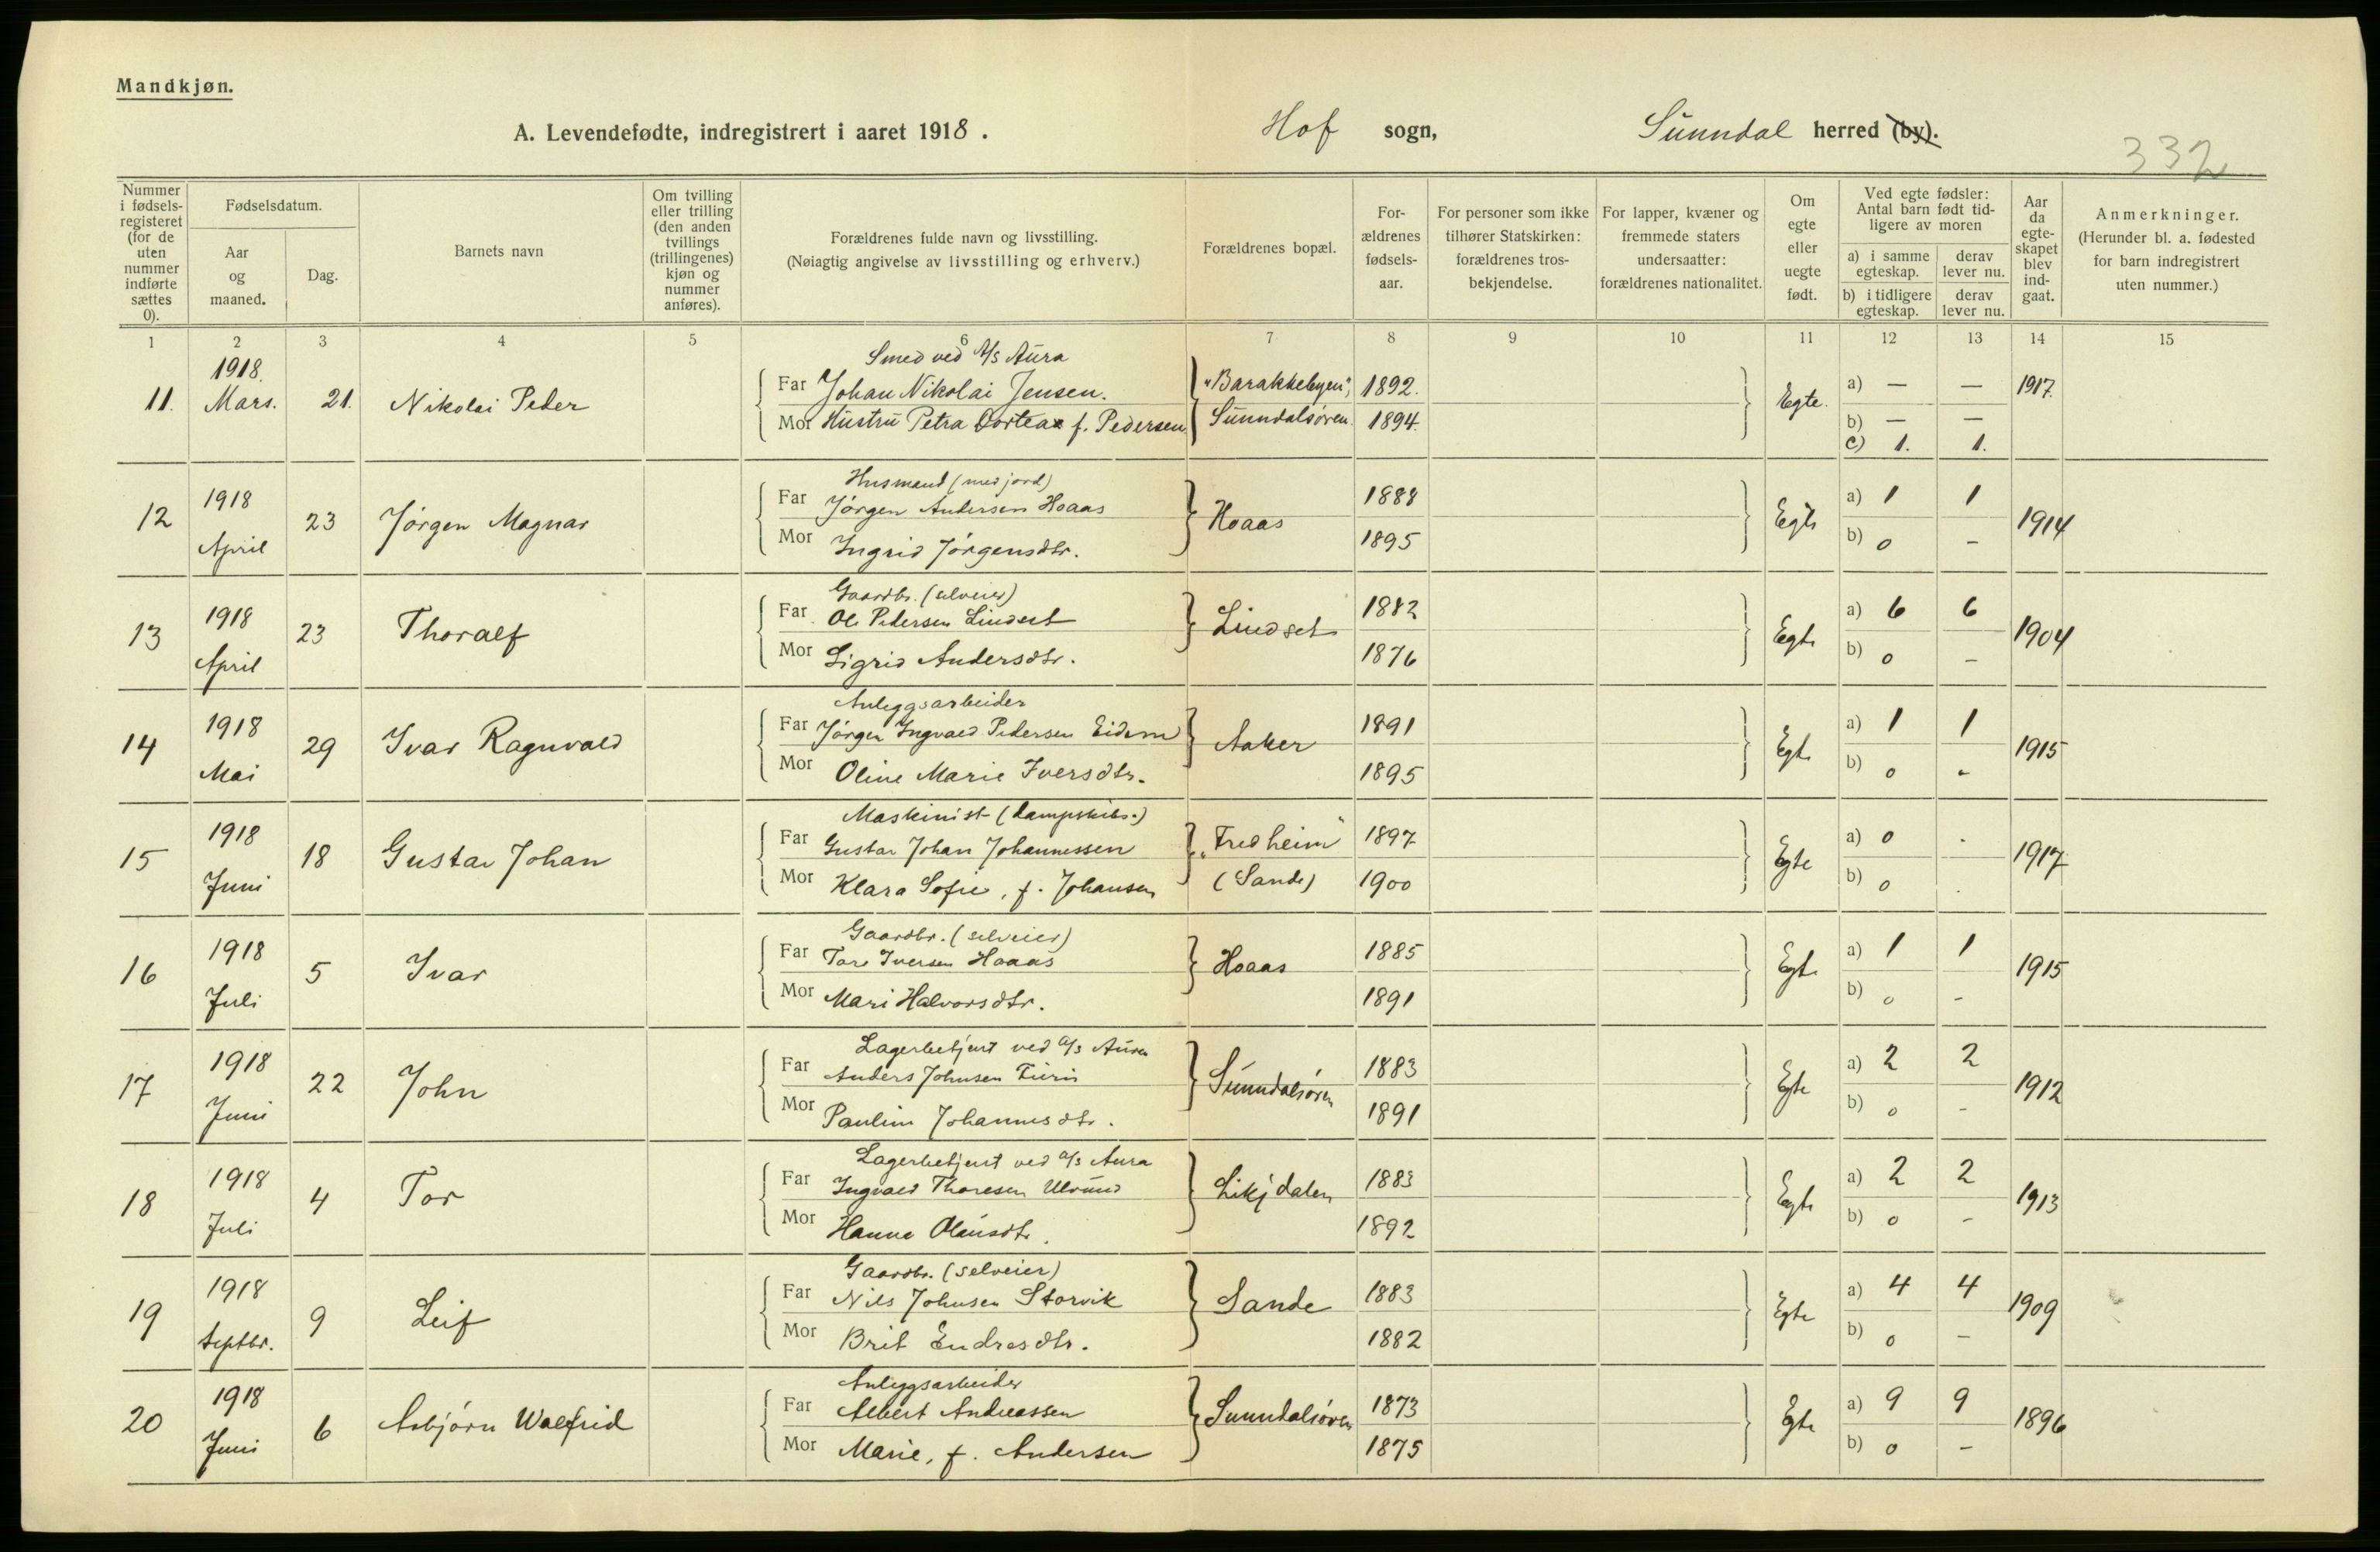 Mandkjøn.
A. Levendefødte, indregistrert i aaret 1918. Hof sogn, Sunndal herred (by).
332
Nummer i fødselsregisteret (for de uten nummer indførte sættes 0).
Fødselsdatum.
Aar og maaned.
Dag.
Barnets navn
Om tvilling eller trilling (den anden tvillings (trillingenes) kjøn og nummer anføres).
Forældrenes fulde navn og livsstilling.
(Nøiagtig angivelse av livsstilling og erhverv.)
Forældrenes bopæl.
Forældrenes fødselsaar.
For personer som ikke tilhører Statskirken: forældrenes trosbekjendelse.
For lapper, kvæner og fremmede staters undersaatter: forældrenes nationalitet.
Om egte eller uegte født.
Ved egte fødsler: Antal barn født tidligere av moren
a) i samme egteskap. derav lever nu.
b) i tidligere egteskap. derav lever nu.
Aar da egteskapet blev indgaat.
Anmerkninger.
(Herunder bl. a. fødested for barn indregistrert uten nummer.)
1 2 3 4 5 6 7 8 9 10 11 12 13 14 15
Smed ved A/s Aura
11. 1918. Mars. 21. Nikolai Peder
Far Johan Nikolai Jensen. "Barakkebyen", 1892. Egte. a) — — 1917.
Mor Hustru Petra Dortea f. Pedersen. Sunndalsøren. 1894. b) — —
c) 1. 1.
Husmand (med jord)
12 1918 April 23 Jørgen Magnar
Far Jørgen Andersen Hoaas Hoaas 1888 Egte a) 1 1 1914
Mor Ingrid Jørgensdtr. 1895 b) 0 -
Gaardbr. (selveier)
13 1918 April 23 Thoralf
Far Ole Pedersen Lindset Lindset 1882 Egte a) 6 6 1904
Mor Sigrid Andersdtr. 1876 b) 0 -
Anleggsarbeider
14 1918 Mai 29 Ivar Ragnvald
Far Jørgen Ingvald Pedersen Eidem Aaker 1891 Egte a) 1 1 1915
Mor Oline Marie Iversdtr. 1895 b) 0 -
Maskinist (dampskibs.)
15 1918 Juni 18 Gustav Johan
Far Gustav Johan Johannessen "Fredheim" 1897 Egte a) 0 . 1917
Mor Klara Sofie, f. Johansen (Sande) 1900 b) 0 .
Gaardbr. (selveier)
16 1918 Juli 5 Ivar
Far Tore Iversen Hoaas Hoaas 1885 Egte a) 1 1 1915
Mor Mari Halvorsdtr. 1891 b) 0 -
Lagerbetjent ved A/s Aura
17 1918 Juni 22 John
Far Anders Johnsen Sunndalsøren 1883 Egte a) 2 2 1912
Mor Pauline Johannesdtr. 1891 b) 0 -
Lagerbetjent ved A/s Aura
18 1918 Juli 4 Tor
Far Ingvald Thoresen Ulvund Likjdalen 1883 Egte a) 2 2 1913
Mor Hanna Olausdtr. 1892 b) 0 -
Gaardbr. (selveier)
19 1918 Septbr. 9 Leif
Far Nils Johnsen Storvik Sande 1883 Egte a) 4 4 1909
Mor Brit Endresdtr. 1882 b) 0 -
Anleggsarbeider
20 1918 Juni 6 Asbjørn Walfrid
Far Albert Andreassen Sunndalsøren 1873 Egte a) 9 9 1896
Mor Marie, f. Andersen 1875 b) 0 -